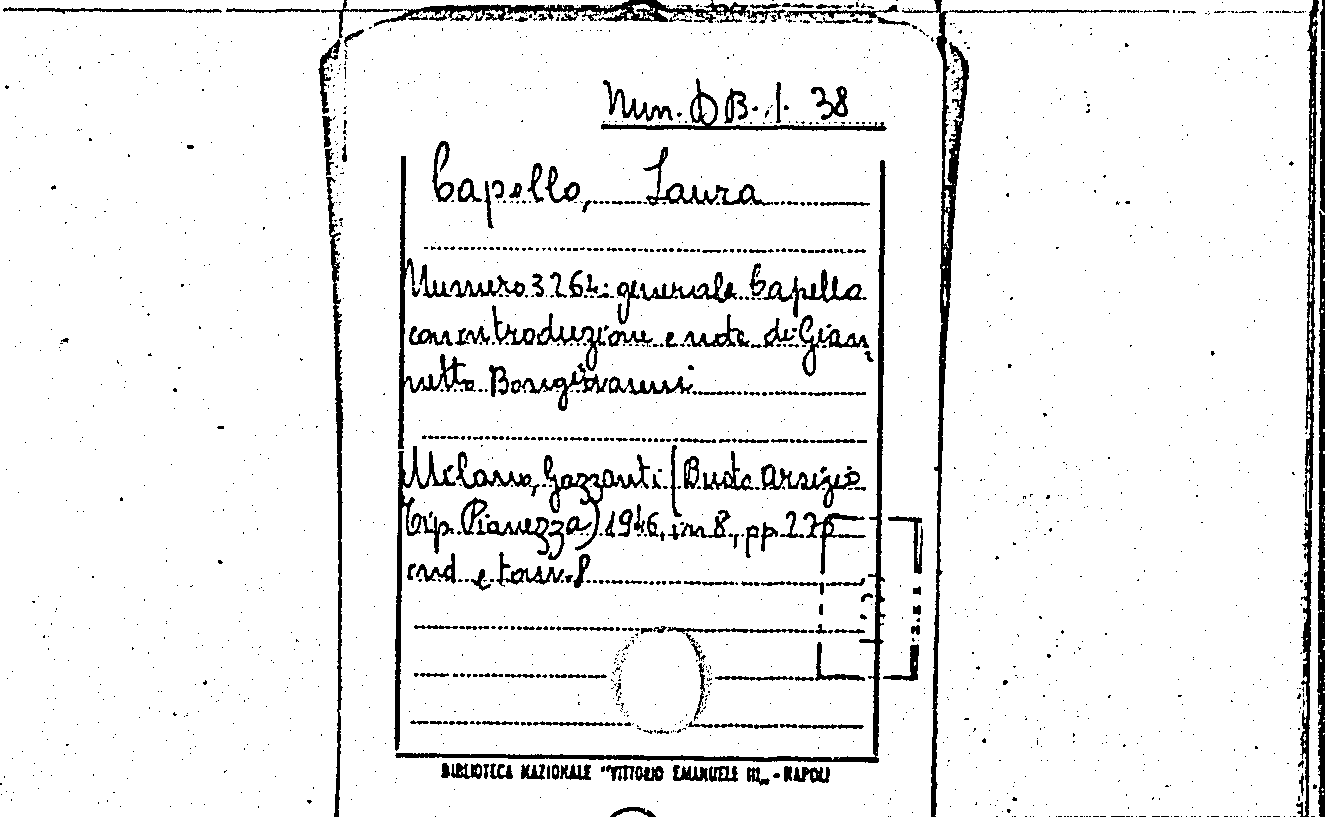 Mun. D B. 1. 38
Capello, Laura
Numero 3264: generale Capello
con introduzione e note di Gian
netto Bongiovanni
Milano, Garzanti (Busto Arsizio
Tip. Pianezza) 1946, in 8, pp.
e tav. 8
BIBLIOTECA NAZIONALE "VITTORIO EMANUELE III„ - NAPOLI